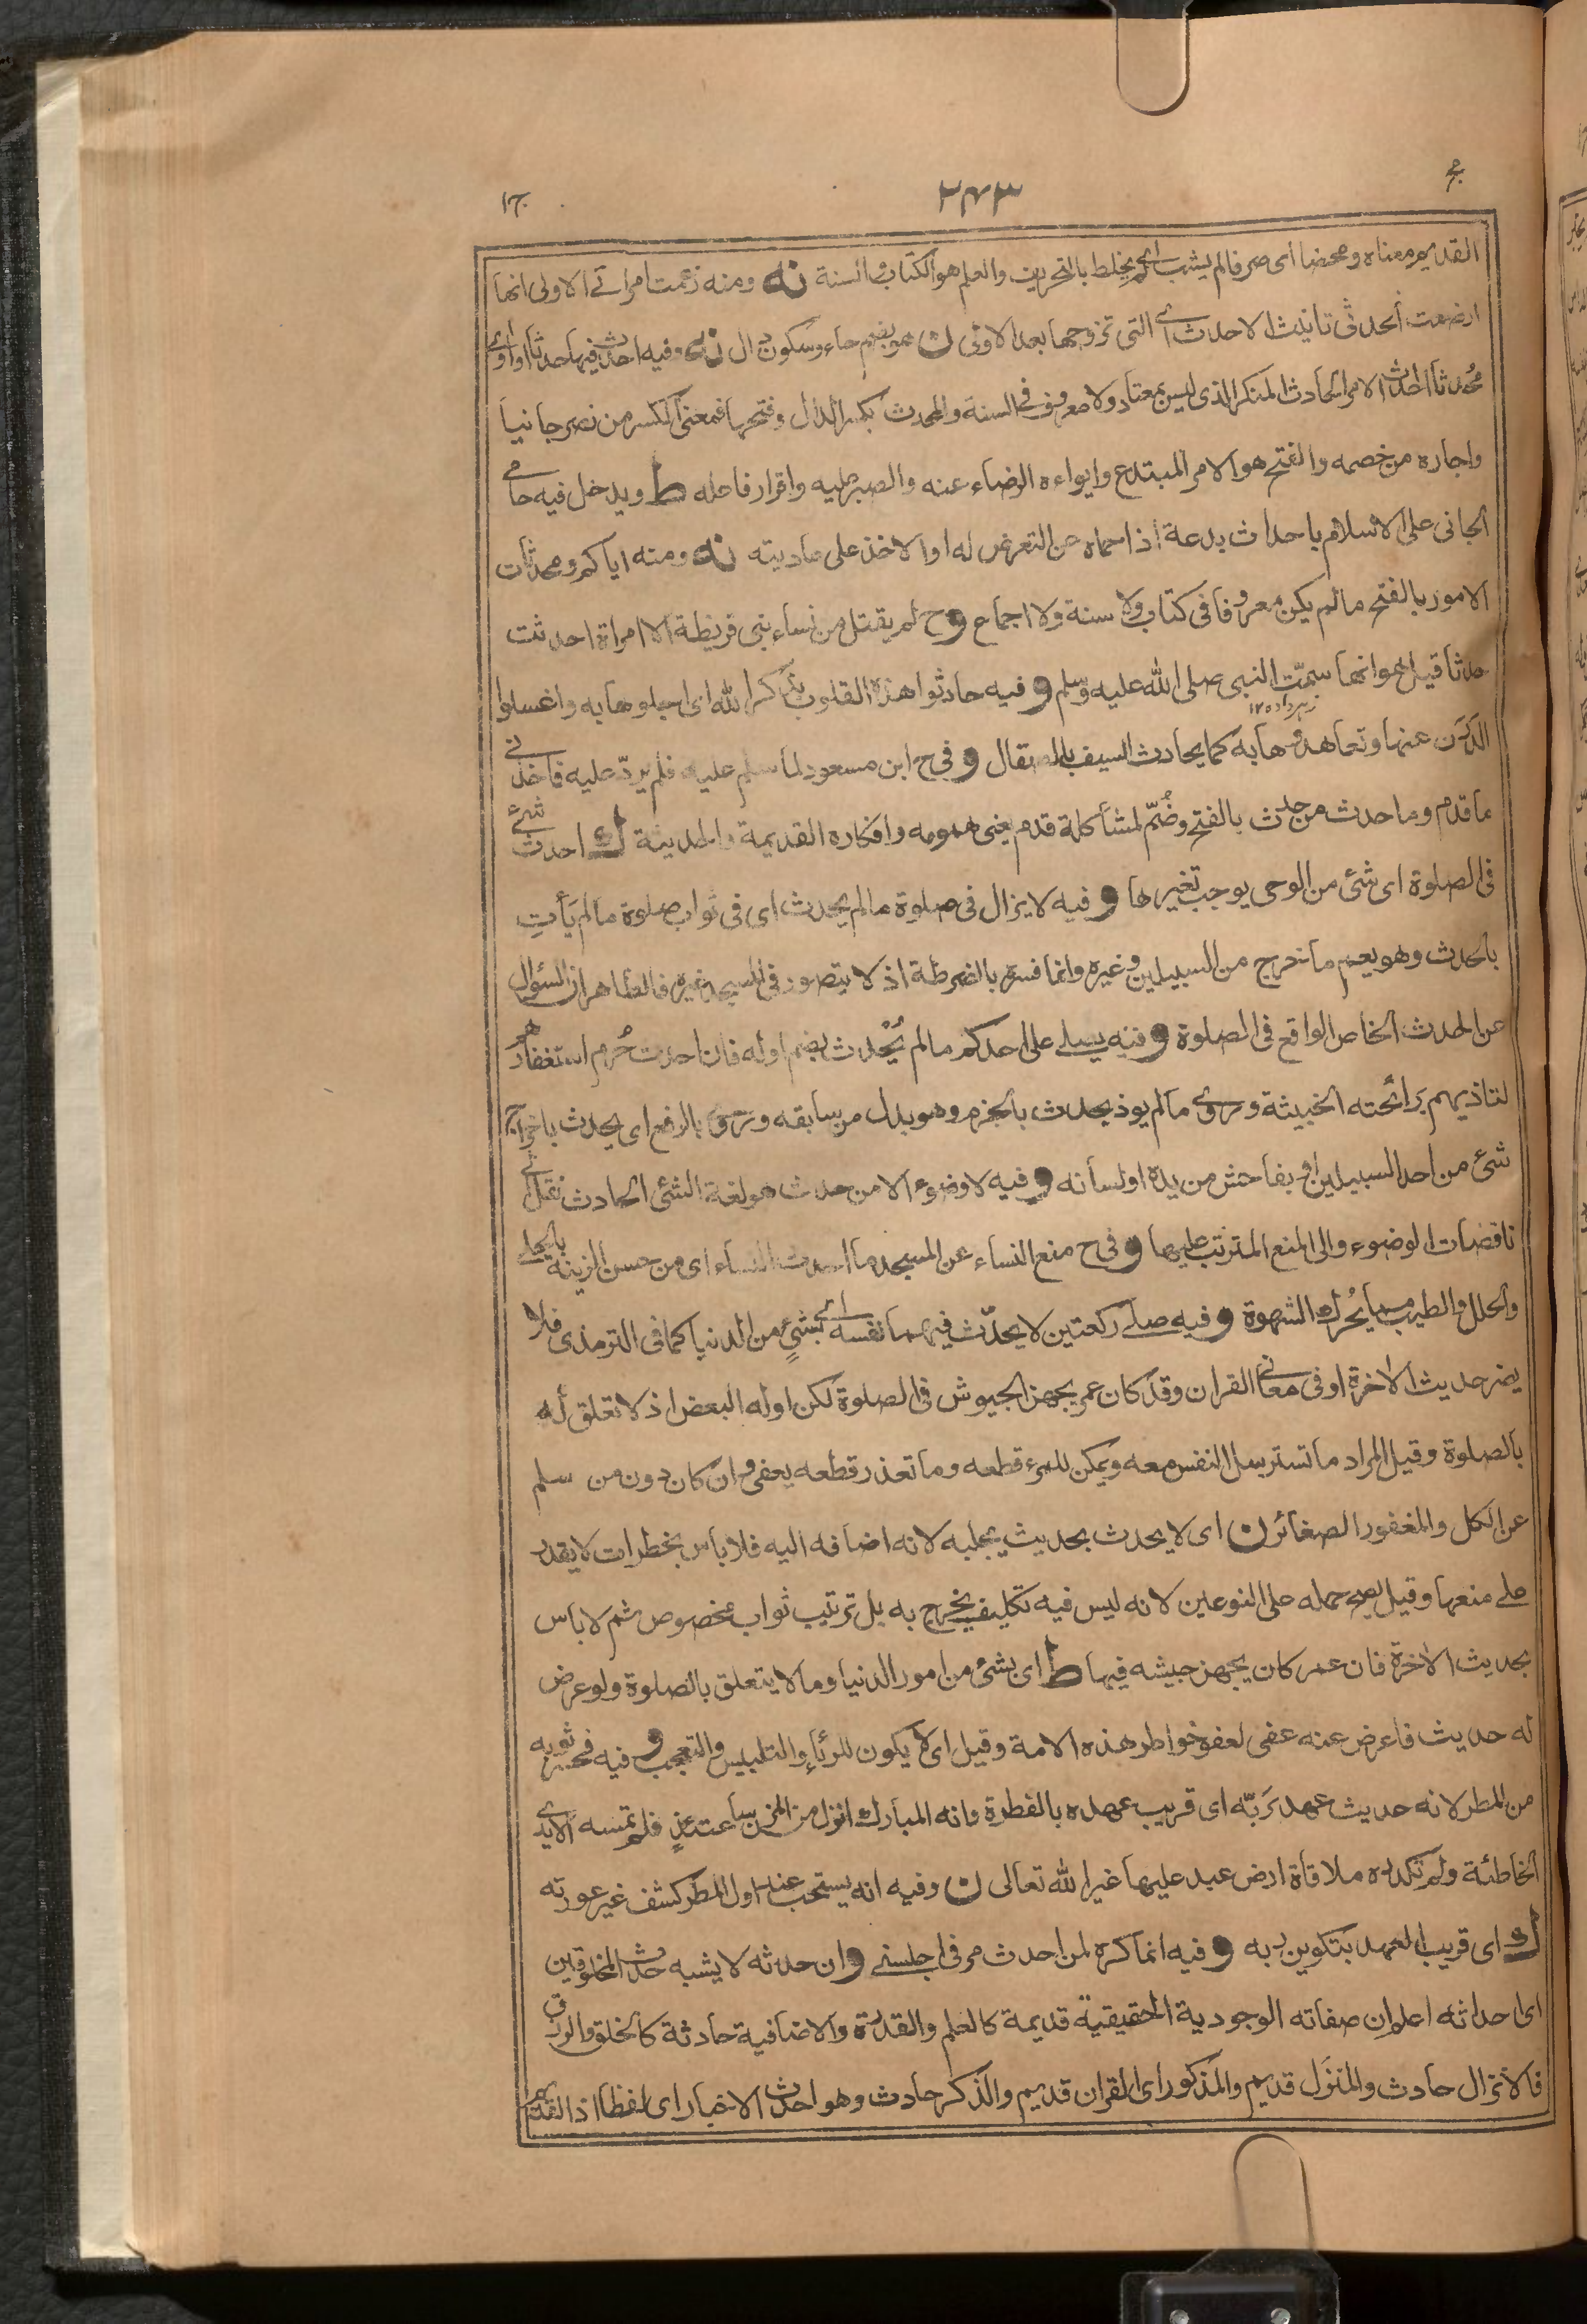 ج
٢٤٣
ج١
القديم معناه ومحضا اى صرفا لم يشب اى لم يخلط بالتحريف والعلم هو الكتاب والسنة نه ومنه زعمت امراتى الاولى انها
ارضعت الحدثى تانيث الاحدث اى التى تزوجها بعد الاولى ن هو بضم حاء وسكون دال نه وفيه احدث فيها حدثا او اوى
محدثا الحدث الامر الحادث المنكر الذى ليس بمعتاد ولا معروف فى السنة والمحدث بكسر الدال وفتحها فمعنى الكسر من نصر جانيا
واجاره من خصمه والفتح هو الامر المبتدع وايواءه الرضاء عنه والصبر عليه واقرار فاعله ط ويدخل فيه حامى
الجانى على الاسلام باحداث بدعة اذا حماه عن التعرض له او الاخذ على عاديته نه ومنه اياكم ومحدثات
الامور بالفتح ما لم يكن معروفا فى كتاب ولا سنة ولا اجماع وح لم يقتل من نساء بنى قريظة الا امراة احدثت
حدثا قيل هو انها سمّت النبى صلى الله عليه وسلم وفيه حادثوا هذه القلوب بذكر الله اى اجلوها به واغسلوا
زهر داد ١٢
الدَرَن عنها وتعاهدوها به كما يحادث السيف بالصقال وفى ح ابن مسعود لما سلم عليه فلم يردّ عليه فاخذنى
ما قدم وما حدث من حدث بالفتح وضُمّ لمشاكلة قدم يعنى همومه وافكاره القديمة والحديثة ك احدث شئ
فى الصلوة اى شئ من الوحى يوجب تغيرها وفيه لا يزال فى صلوة ما لم يحدث اى فى ثواب صلوة ما لم يأتِ
بالحدث وهو يعم ما خرج من السبيلين وغيره وانما فسره بالضرطة اذ لا يتصور فى المسجد غيره فالظاهر ان السؤال
عن الحدث الخاص الواقع فى الصلوة وفيه يصلى على احدكم ما لم يُحْدث بضم اوله فان احدث حُرم استغفارهم
لتاذيهم برائحته الخبيثة وروى ما لم يوذ يحدث بالجزم وهو بدل من سابقه وروى بالرفع اى يحدث باخراج
شئ من احد السبيلين او بفاحش من يده او لسانه وفيه لا وضوء الا من حدث هو لغة الشئ الحادث نقل الى
ناقضات الوضوء والى المنع المترتب عليها وفى ح منع النساء عن المسجد ما احدث النساء اى من حسن الزينة بالحلى
والحلل والطيب مما يُحرك الشهوة وفيه صلى ركعتين لا يحدّث فيهما نفسه اى بشئٍ من الدنيا كما فى الترمذى فلا
يضر حديث الاخرة او فى معانى القران وقد كان عمر يجهز الجيوش فى الصلوة لكن اوله البعض اذ لا تعلق له
بالصلوة وقيل المراد ما تسترسل النفس معه ويمكن للمرء قطعه وما تعذر قطعه يعفى وان كان دون من سلم
عن الكل والمغفور الصغائر ن اى لا يحدث بحديث يجلبه لانه اضافه اليه فلا باس بخطرات لا يقدر
على منعها وقيل يصح حمله على النوعين لانه ليس فيه تكليف يخرج به بل ترتيب ثواب مخصوص ثم لا باس
بحديث الاخرة فان عمر كان يجهز جيشه فيها ط اى بشئ من امور الدنيا وما لا يتعلق بالصلوة ولو عرض
له حديث فاعرض عنه عفى لعفو خواطر هذه الامة وقيل اى لا يكون للرئاء والتلبيس والتعجب وفيه فحسر ثوبه
من المطر لانه حديث عهد بَربّه اى قريب عهده بالفطرة وانه المبارك انزل من المزن ساعتئذٍ فلم تمسه الايدى
الخاطئة ولم تكدره ملاقاة ارض عبد عليها غير الله تعالى ن وفيه انه يستحب عند اول المطر كشف غير عورته
ك اى قريب العهد بتكوين ربه وفيه انما كره لمن احدث مر فى اجلسنى وان حدثه لا يشبه حدث المخلوقين
اى احداثه اعلم ان صفاته الوجودية الحقيقية قديمة كالعلم والقدرة والاضافية حادثة كالخلق والرزق
فالانزال حادث والمنزَل قديم والمذكور اى القران قديم والذكر حادث وهو احدث الاخبار اى لفظا اذ القديم